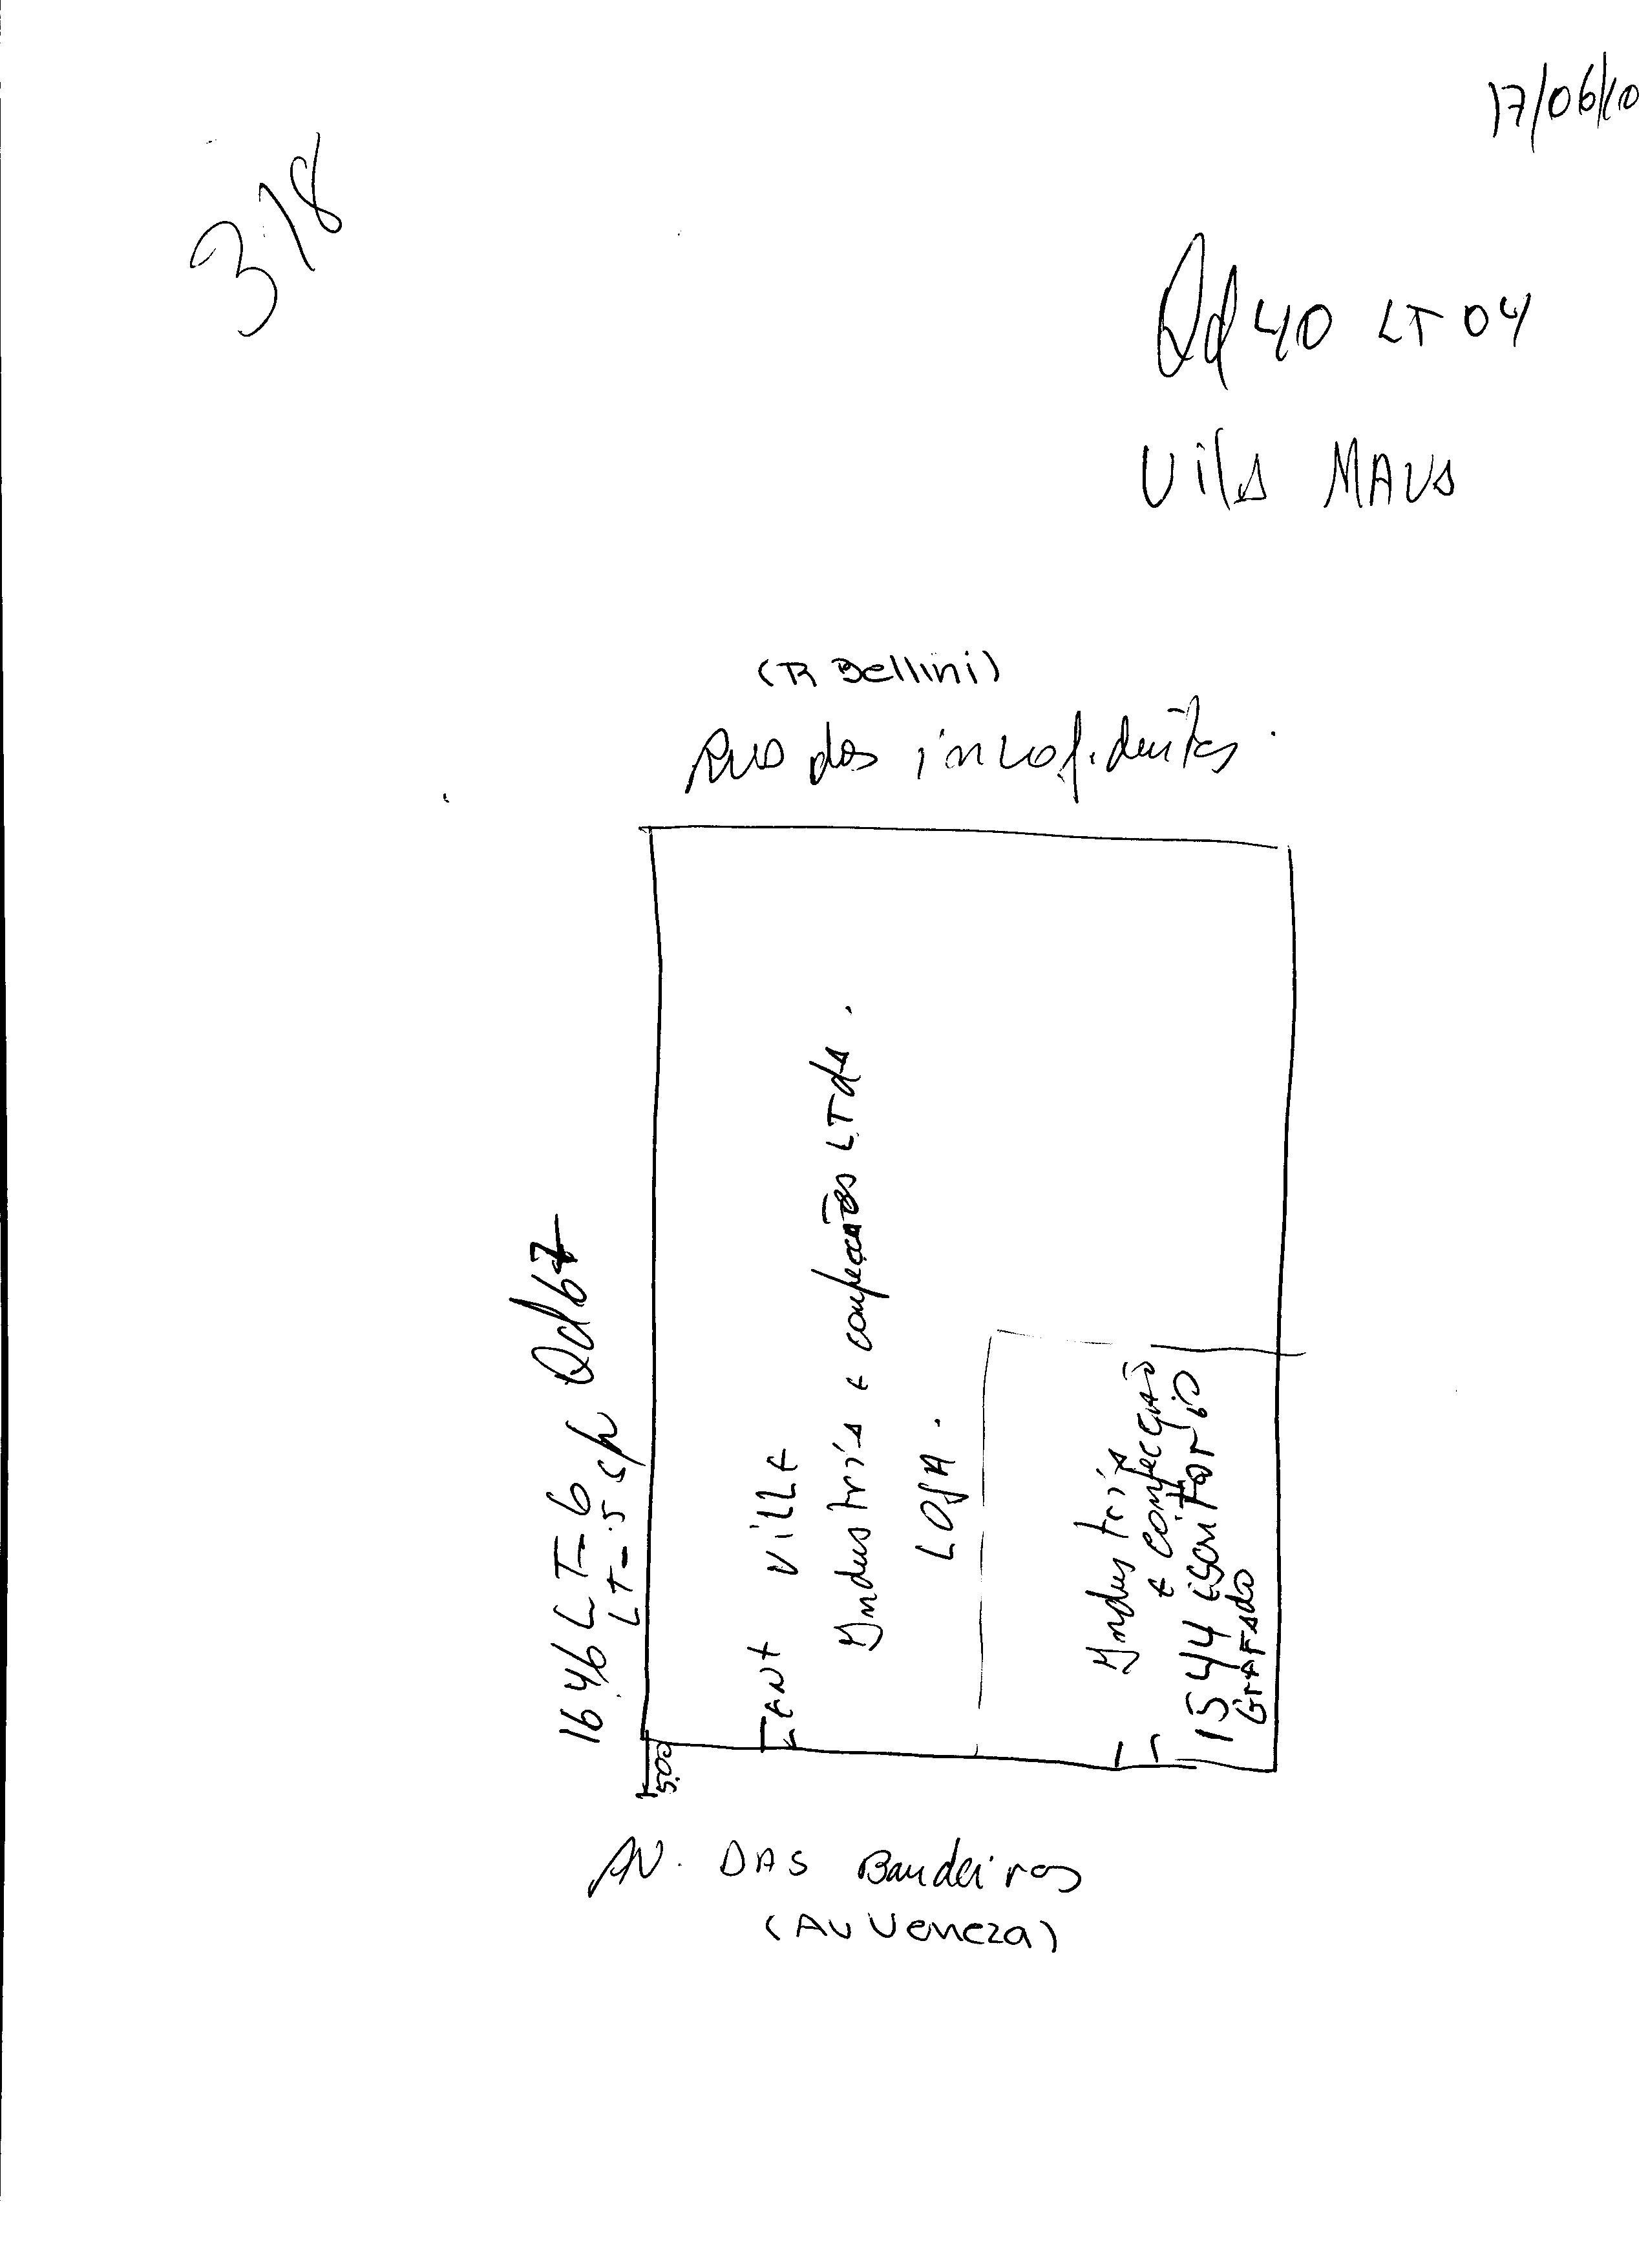 17/06/10
318
Qd 40 LT 04
Vila MAUA
(R Bellini)
Rua dos inconfidentes.
1646 LT=6 Qd 67
LT=5
5.00
VILLE
Industria e confecções LTda.
LOJA.
Industria
e confecção
1544 escritorio
AV. DAS Bandeiras
(AV Veneza)